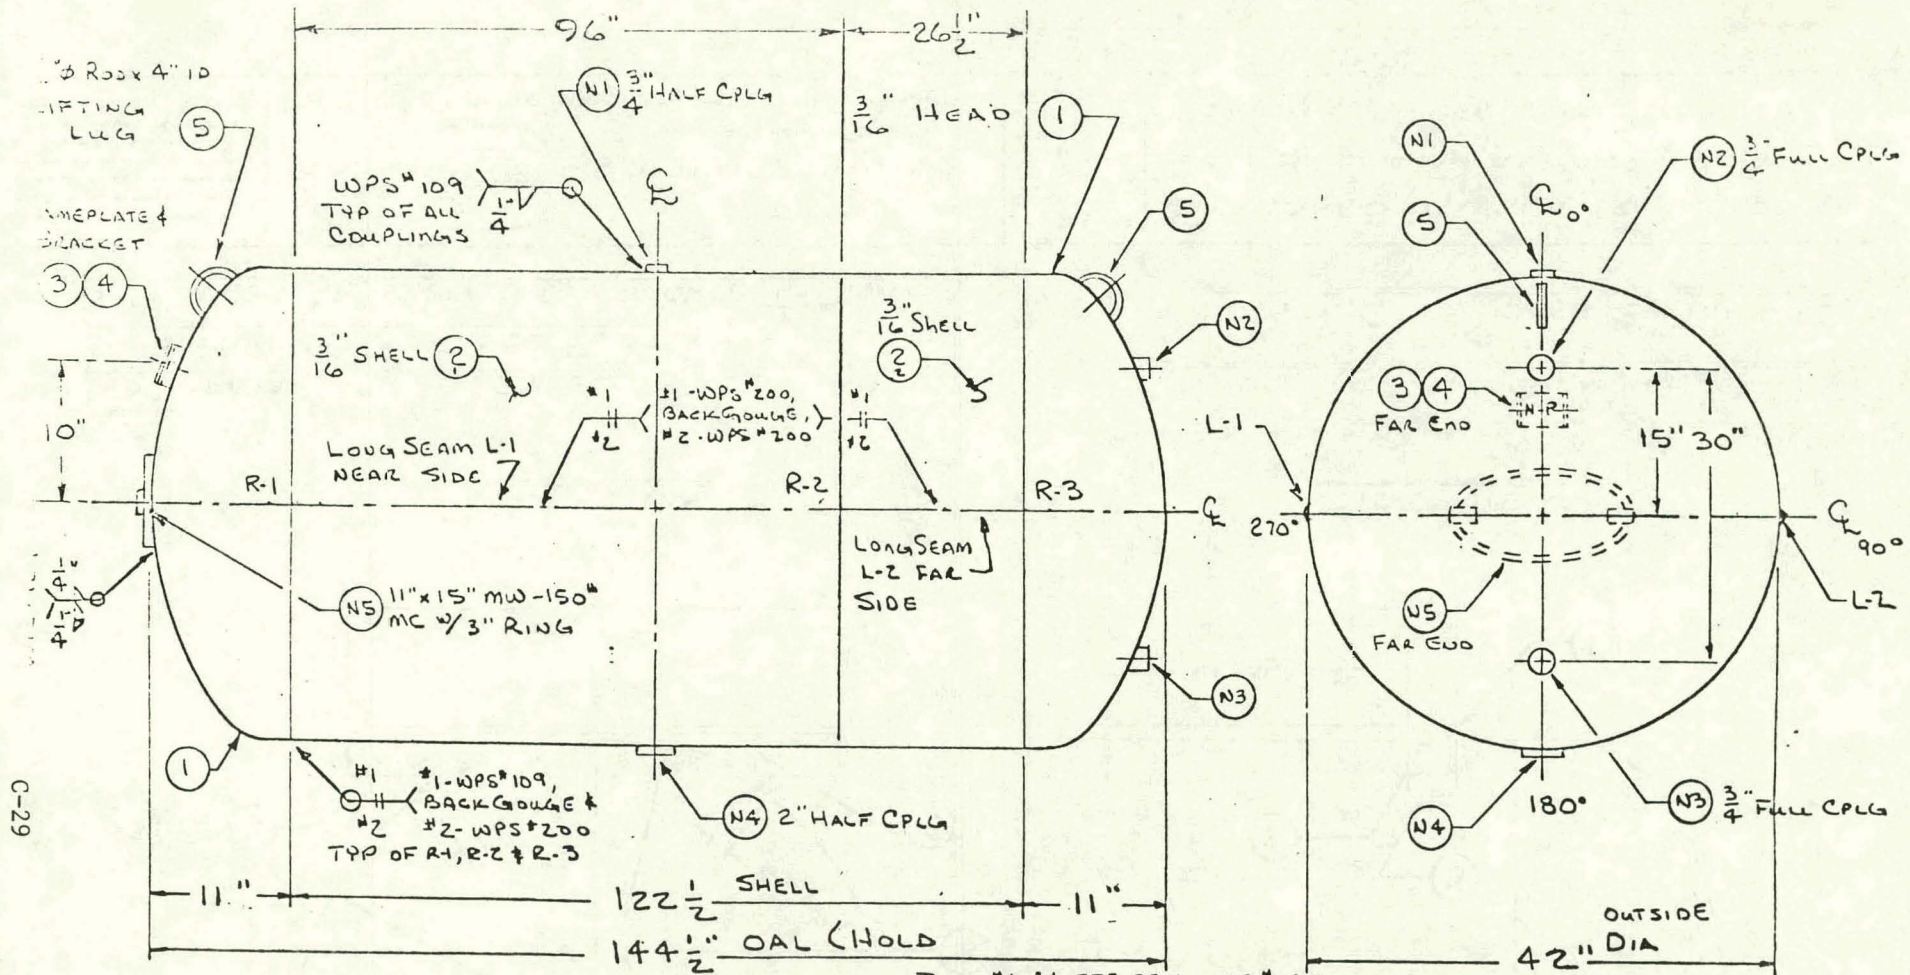 96"
26 1/2"
Rod x 4" ID
LIFTING
LUG
5
N1 3/4" HALF CPLG
3/16" HEAD
1
WPS #109
TYP OF ALL
COUPLINGS
1/4
℄
5
NAMEPLATE &
BRACKET
3 4
10"
3/16" SHELL 2
3/16" SHELL
2
N2
#1
#2
#1-WPS #200,
BACKGOUGE,
#2-WPS #200
#1
#2
LONG SEAM L-1
NEAR SIDE
R-1
R-2
R-3
℄
LONG SEAM
L-2 FAR
SIDE
1/4"
1/4
N5 11" x 15" MW-150#
MC W/3" RING
N3
1
#1
#2
#1-WPS #109,
BACKGOUGE &
#2-WPS #200
TYP OF R-1, R-2 & R-3
N4 2" HALF CPLG
11"
122 1/2 SHELL
11"
144 1/2" OAL (HOLD
N1
℄ 0°
5
N2 3/4" FULL CPLG
3 4
FAR END
N-P
15"
30"
L-1
270°
℄ 90°
L-2
N5
FAR END
N4
180°
N3 3/4" FULL CPLG
OUTSIDE
42" DIA
C-29